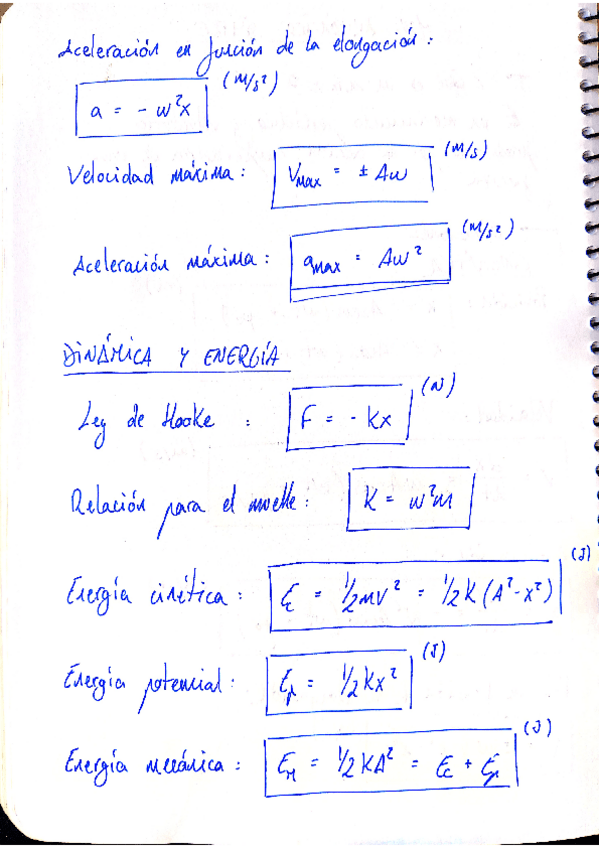 Aceleración en función de la elongación :
a = - w²x (m/s²)
Velocidad máxima : Vmax = ± Aw (m/s)
Aceleración máxima : amax = Aw² (m/s²)
DINÁMICA Y ENERGÍA
Ley de Hooke : F = - Kx (N)
Relación para el muelle : K = w²m
Energía cinética : Ec = 1/2mv² = 1/2K(A²-x²) (J)
Energía potencial : Ep = 1/2Kx² (J)
Energía mecánica : EM = 1/2KA² = Ec + Ep (J)